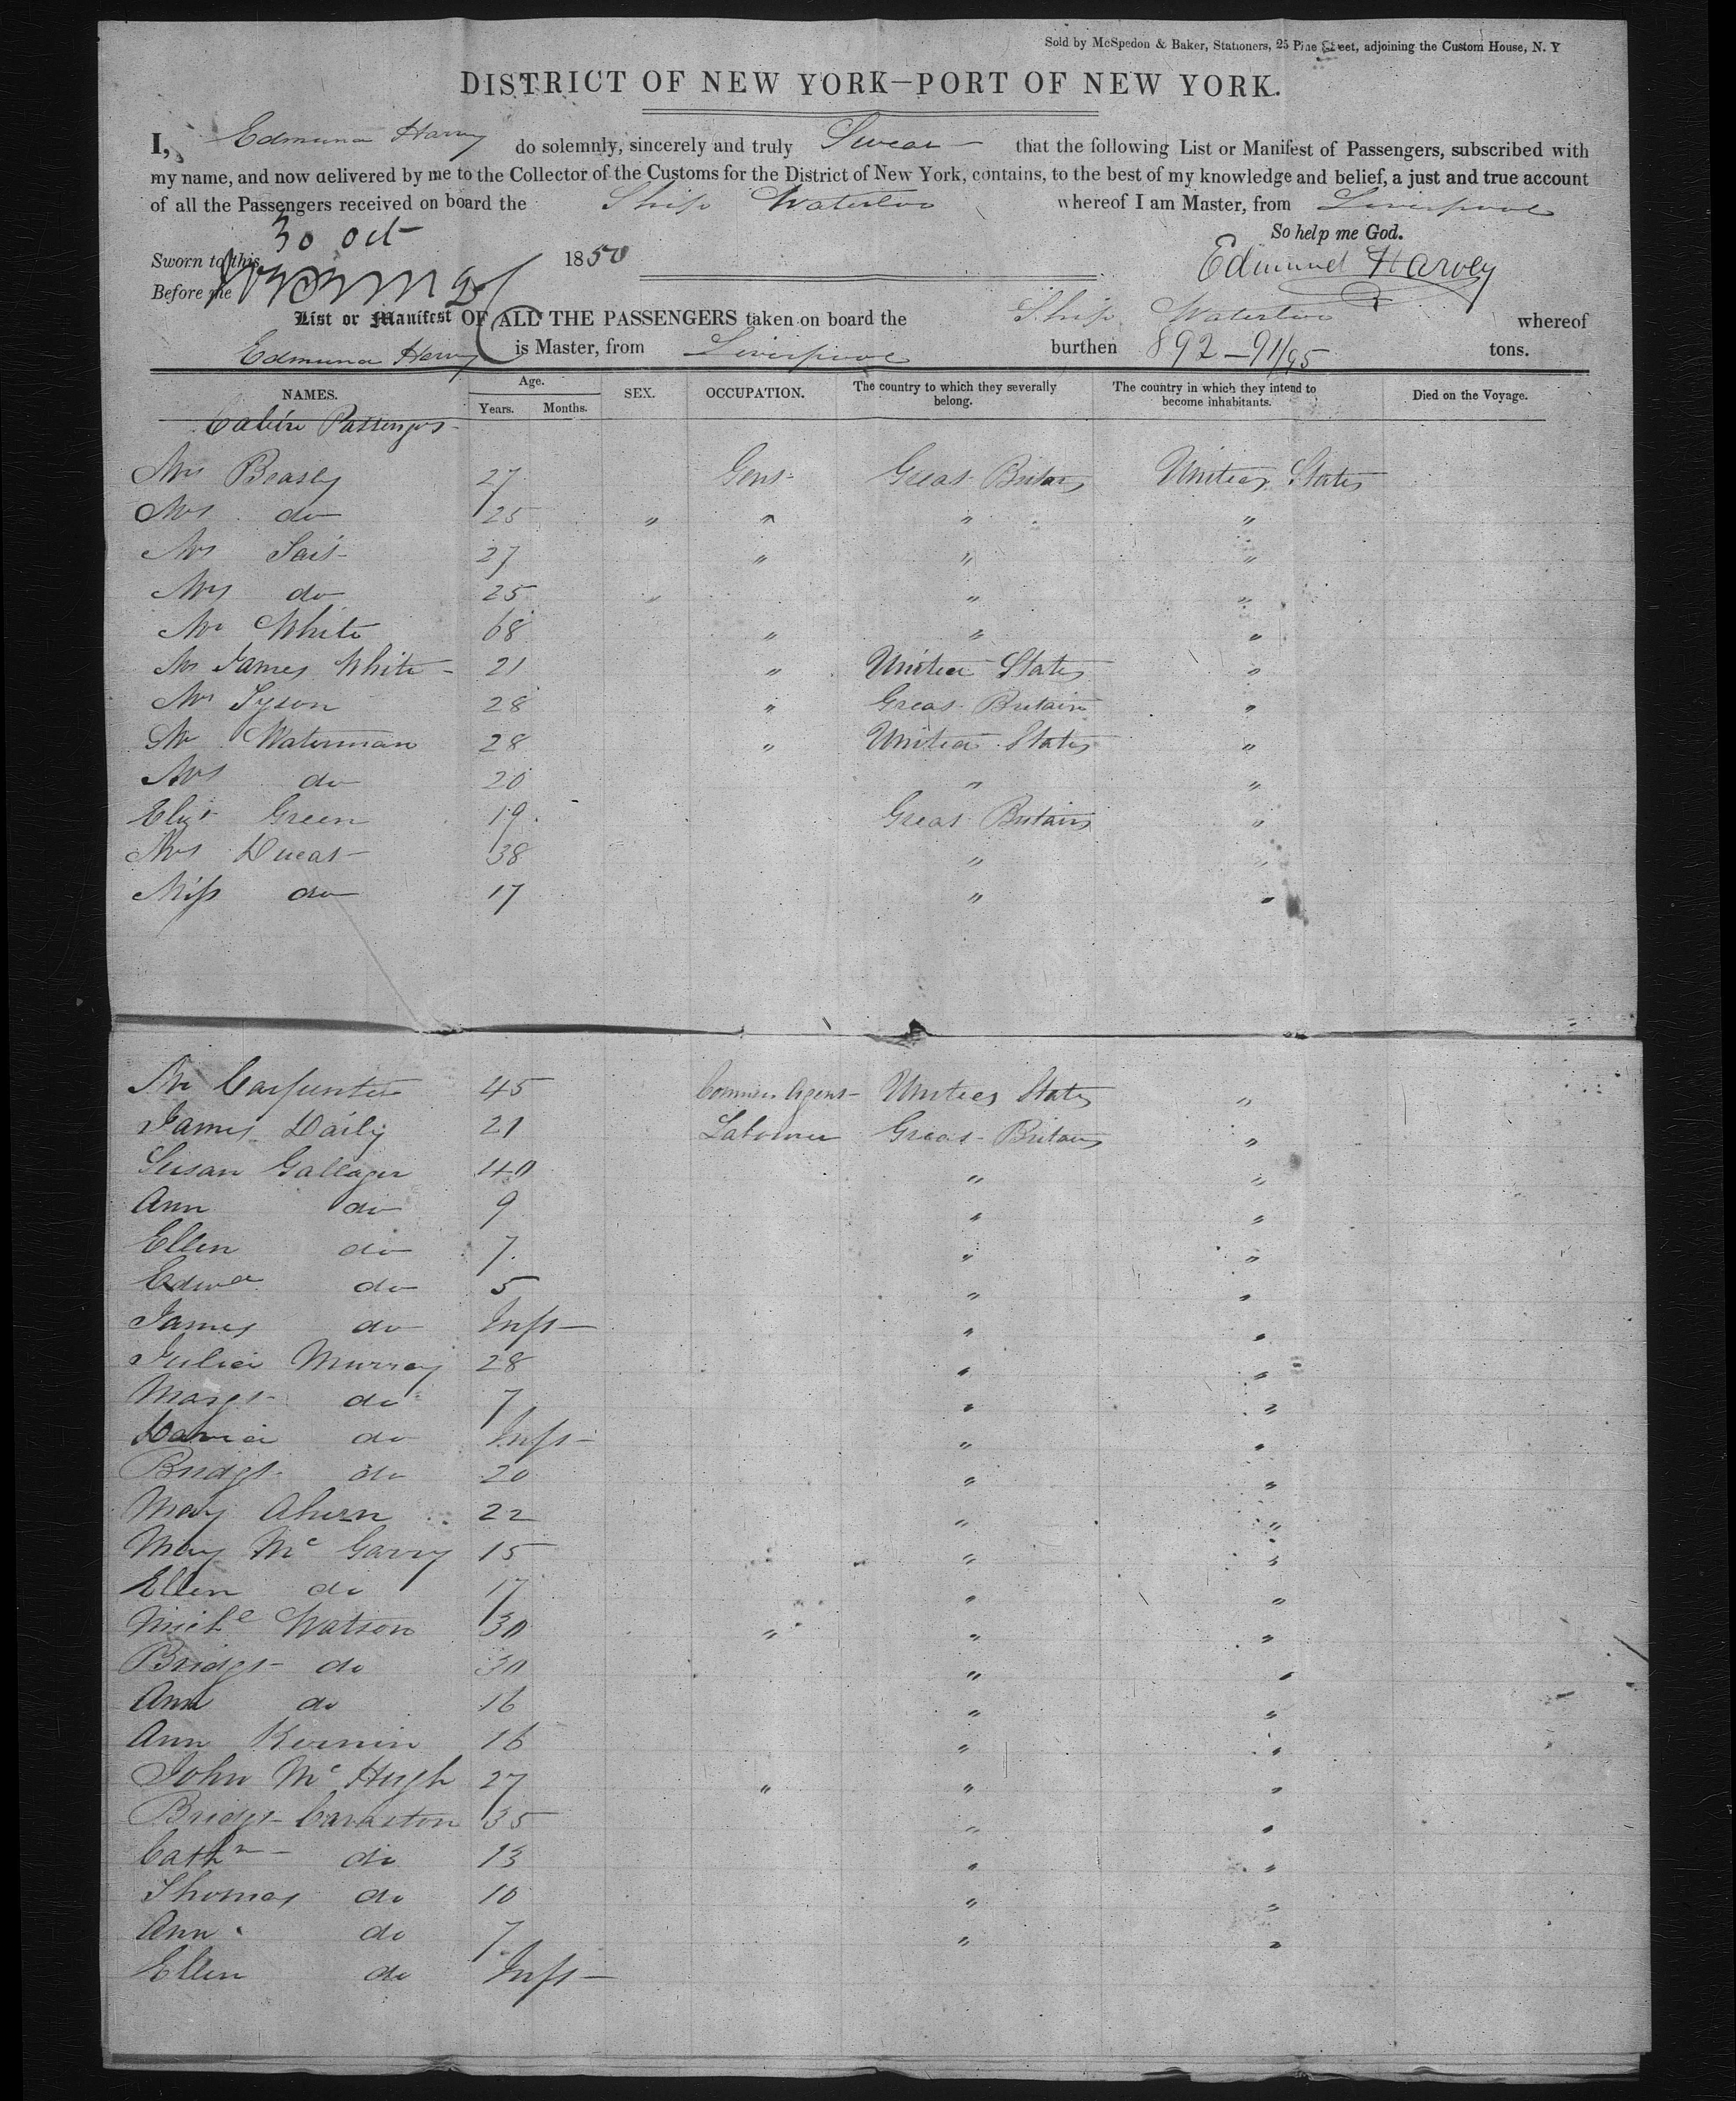 Sold by McSpedon & Baker, Stationers, 25 Pine Street, adjoining the Custom House, N. Y
DISTRICT OF NEW YORK—PORT OF NEW YORK.
I, Edmund Harvey do solemnly, sincerely and truly Swear that the following List or Manifest of Passengers, subscribed with
my name, and now delivered by me to the Collector of the Customs for the District of New York, contains, to the best of my knowledge and belief, a just and true account
of all the Passengers received on board the Ship Waterloo whereof I am Master, from Liverpool
So help me God.
Sworn to this 30 Oct 1850
Edmund Harvey
Before me
List or Manifest OF ALL THE PASSENGERS taken on board the Ship Waterloo whereof
Edmund Harvey is Master, from Liverpool burthen 892-91/95 tons.
NAMES. Age. Years. Months. SEX. OCCUPATION. The country to which they severally belong. The country in which they intend to become inhabitants. Died on the Voyage.
Cabin Passengers
Mr Beasly 27 Gent Great Britain United States
Mrs do 25 " " " "
Mr 27 " " "
Mrs do 25 " " "
Mr White 68 " " "
Mr James White 21 " United States "
Mr Tyson 28 " Great Britain "
Mr Waterman 28 " United States "
Mrs do 20 " "
Elizt Green 19 Great Britain "
Mrs Ducat 38 " "
Miss do 17 " "
Mr Carpenter 45 Agent United States "
James Daily 21 Labourer Great Britain "
Susan Gallager 40 " "
Ann do 9 " "
Ellen do 7 " "
Edwd do 5 " "
James do Inft " "
Julia Murray 28 " "
Margt do 7 " "
David do Inft " "
Bridgt do 20 " "
Mary Ahern 22 " "
Mary Mc Garry 15 " "
Ellen do 17 " "
Michl Watson 30 " " "
Bridgt do 30 " "
Ann do 16 " "
Ann Kernin 16 " "
John Mc Hugh 27 " " "
Bridgt 35 " "
Cathn do 13 " "
Thomas do 10 " "
Ann do 7 " "
Ellen do Inft